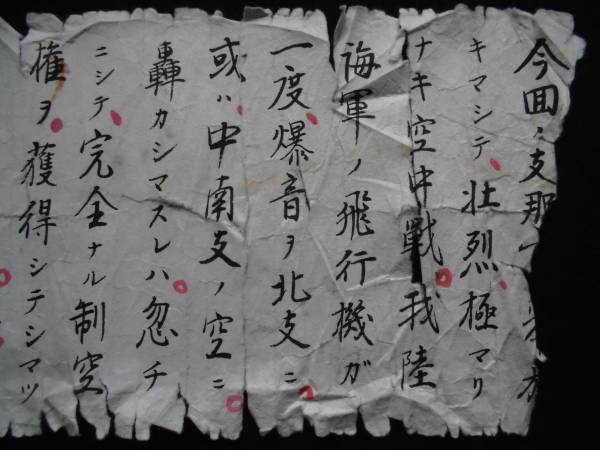 今回ノ支那
キマシテ壮烈極マリ
ナキ空中戦我陸
海軍ノ飛行機ガ
一度爆音ヲ北支ニ
或ハ中南支ノ空ニ
轟カシマスレハ忽チ
ニシテ完全ナル制空
権ヲ獲得シテシマツ